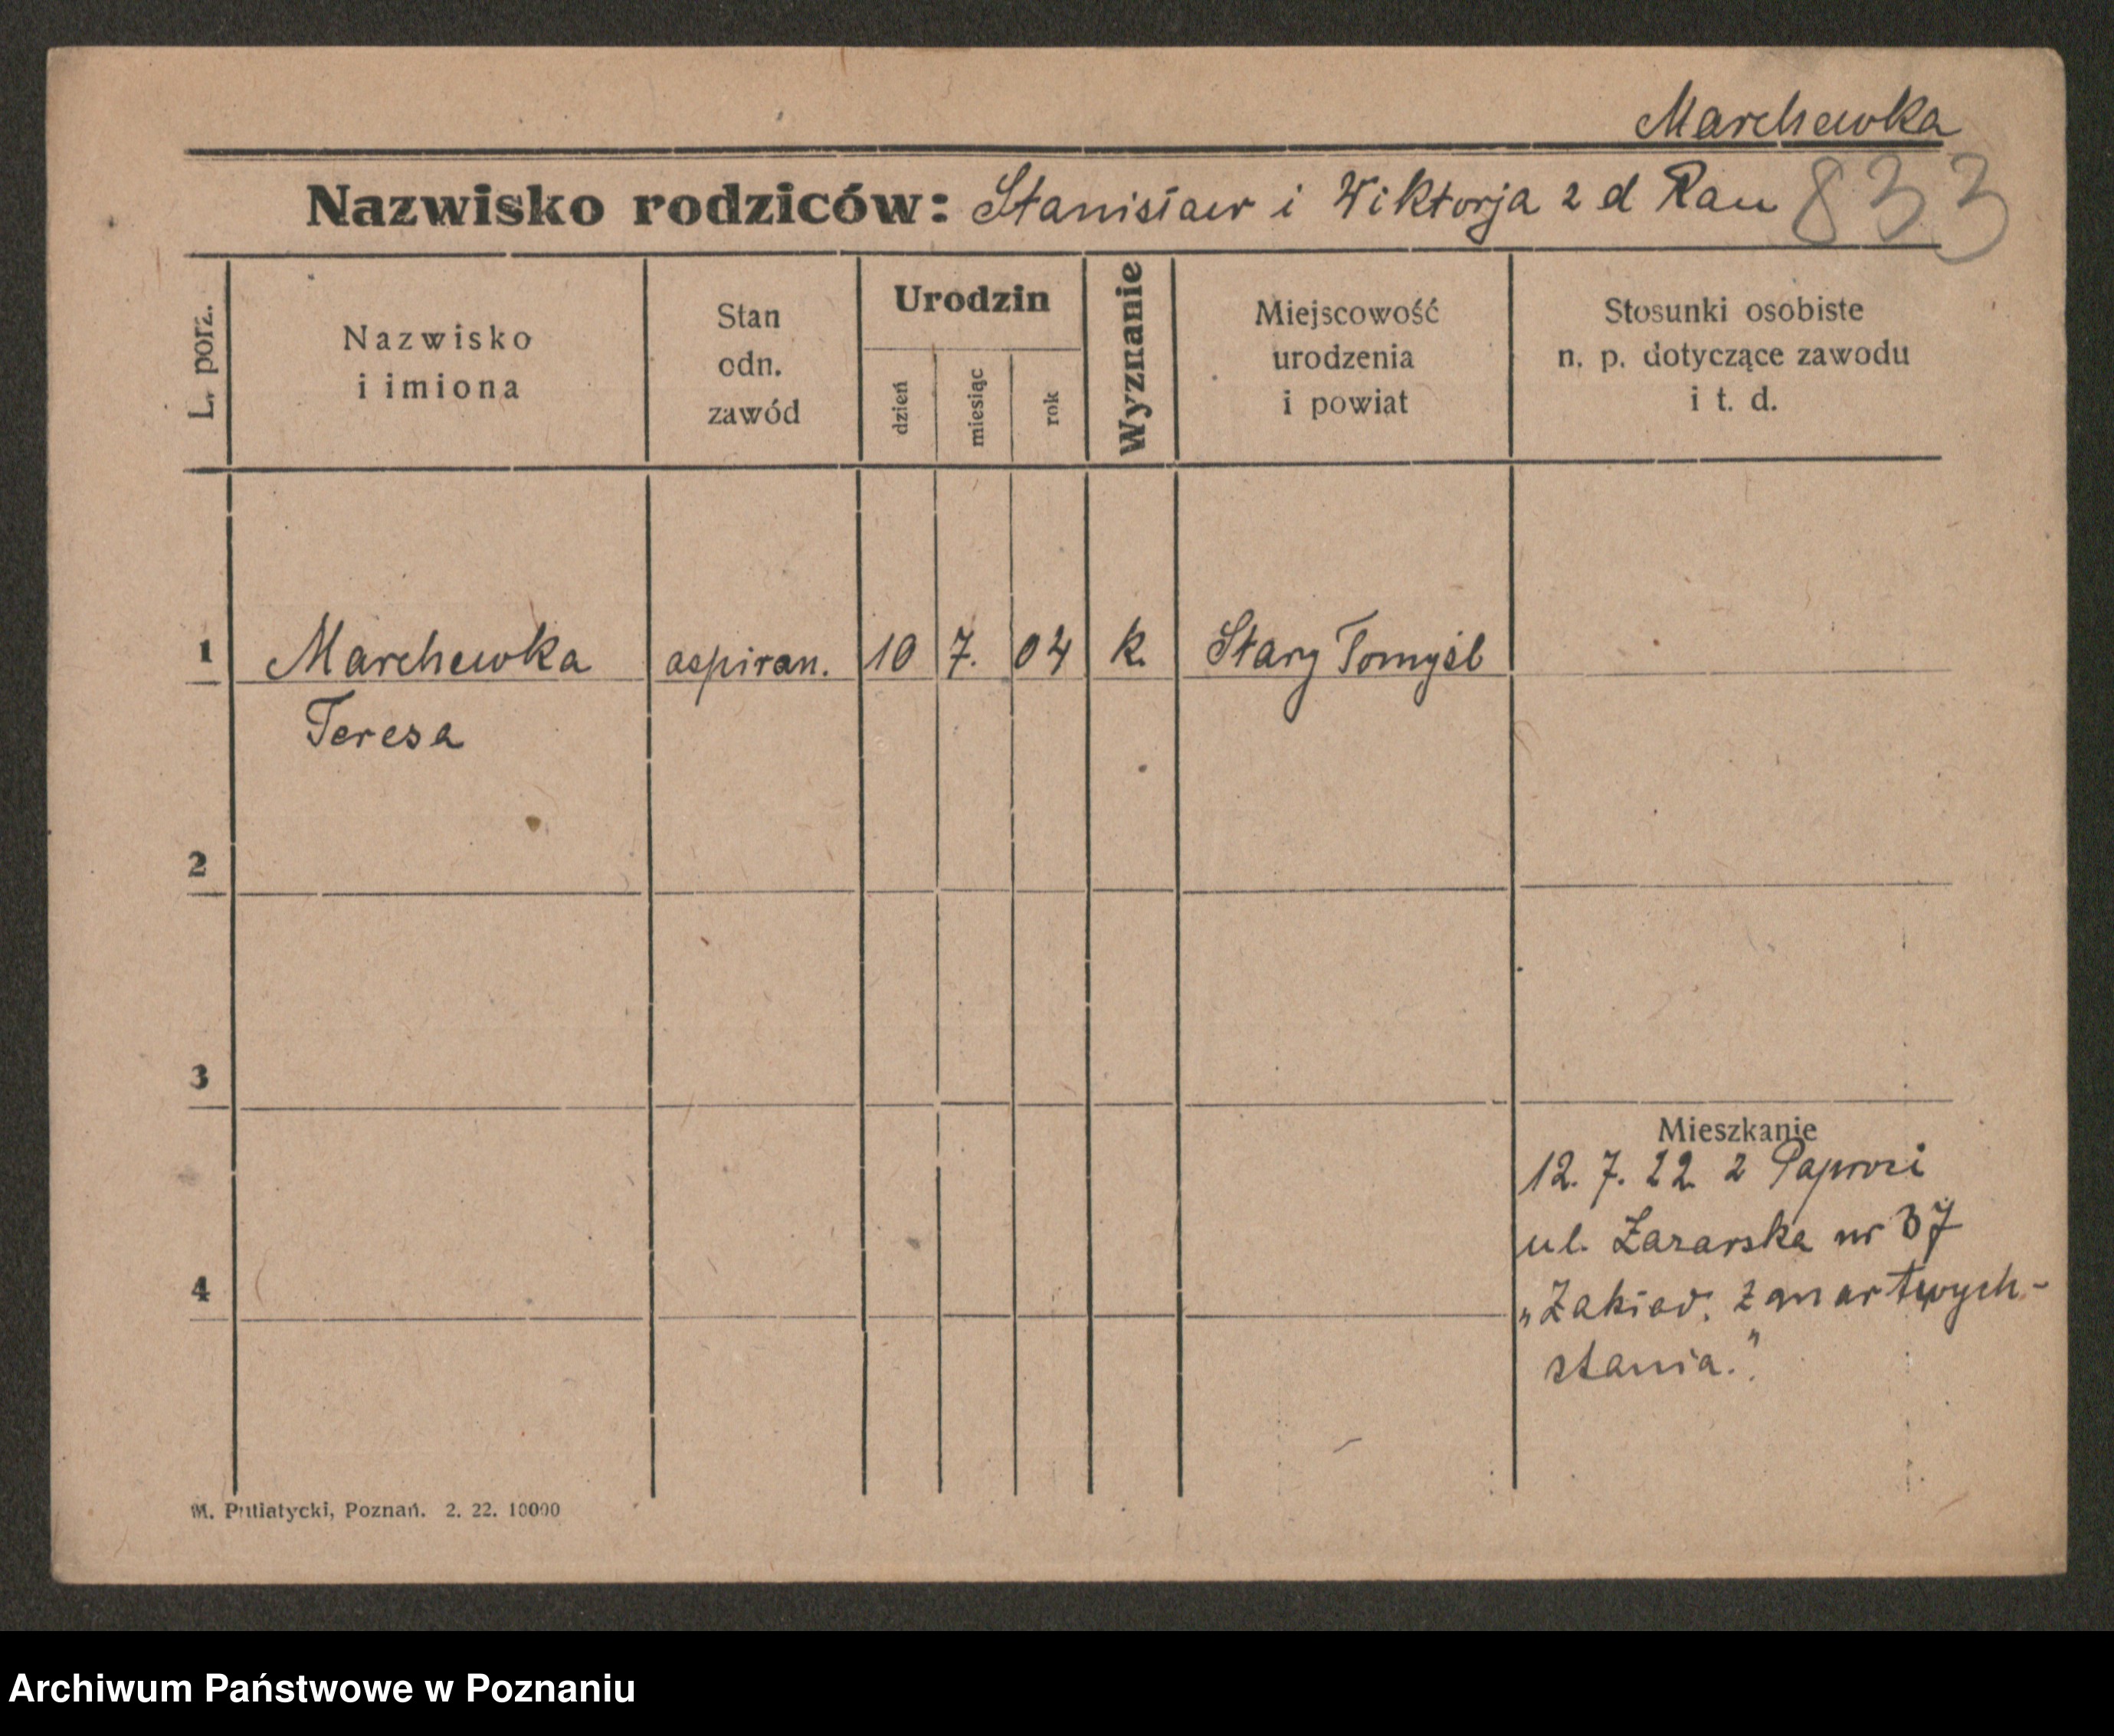 Marchewka
Nazwisko rodziców: Stanisław i Wiktorja z d Rau 833
L. porz.
Nazwisko
i imiona
Stan
odn.
zawód
Urodzin
dzień
miesiąc
rok
Wyznanie
Miejscowość
urodzenia
i powiat
Stosunki osobiste
n. p. dotyczące zawodu
i t. d.
1 Marchewka aspiran. 10 7. 04 k. Stary Tomyśl
Teresa
2
3
Mieszkanie
12. 7. 22 z Paproci
ul. Łazarska nr 37
4
„Zakład. zmartwych-
stania.”
M. Putiatycki, Poznań. 2. 22. 10000
Archiwum Państwowe w Poznaniu